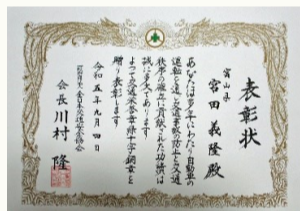 表彰状
富山県
宮田義隆殿
あなたは多年にわたり自動車の
運転を通じ交通事故防止と交通
秩序の確立に貢献された功績は
誠に多大であります
よって交通栄誉章緑十字銅章を
贈り表彰します
令和五年九月四日
会長川村隆